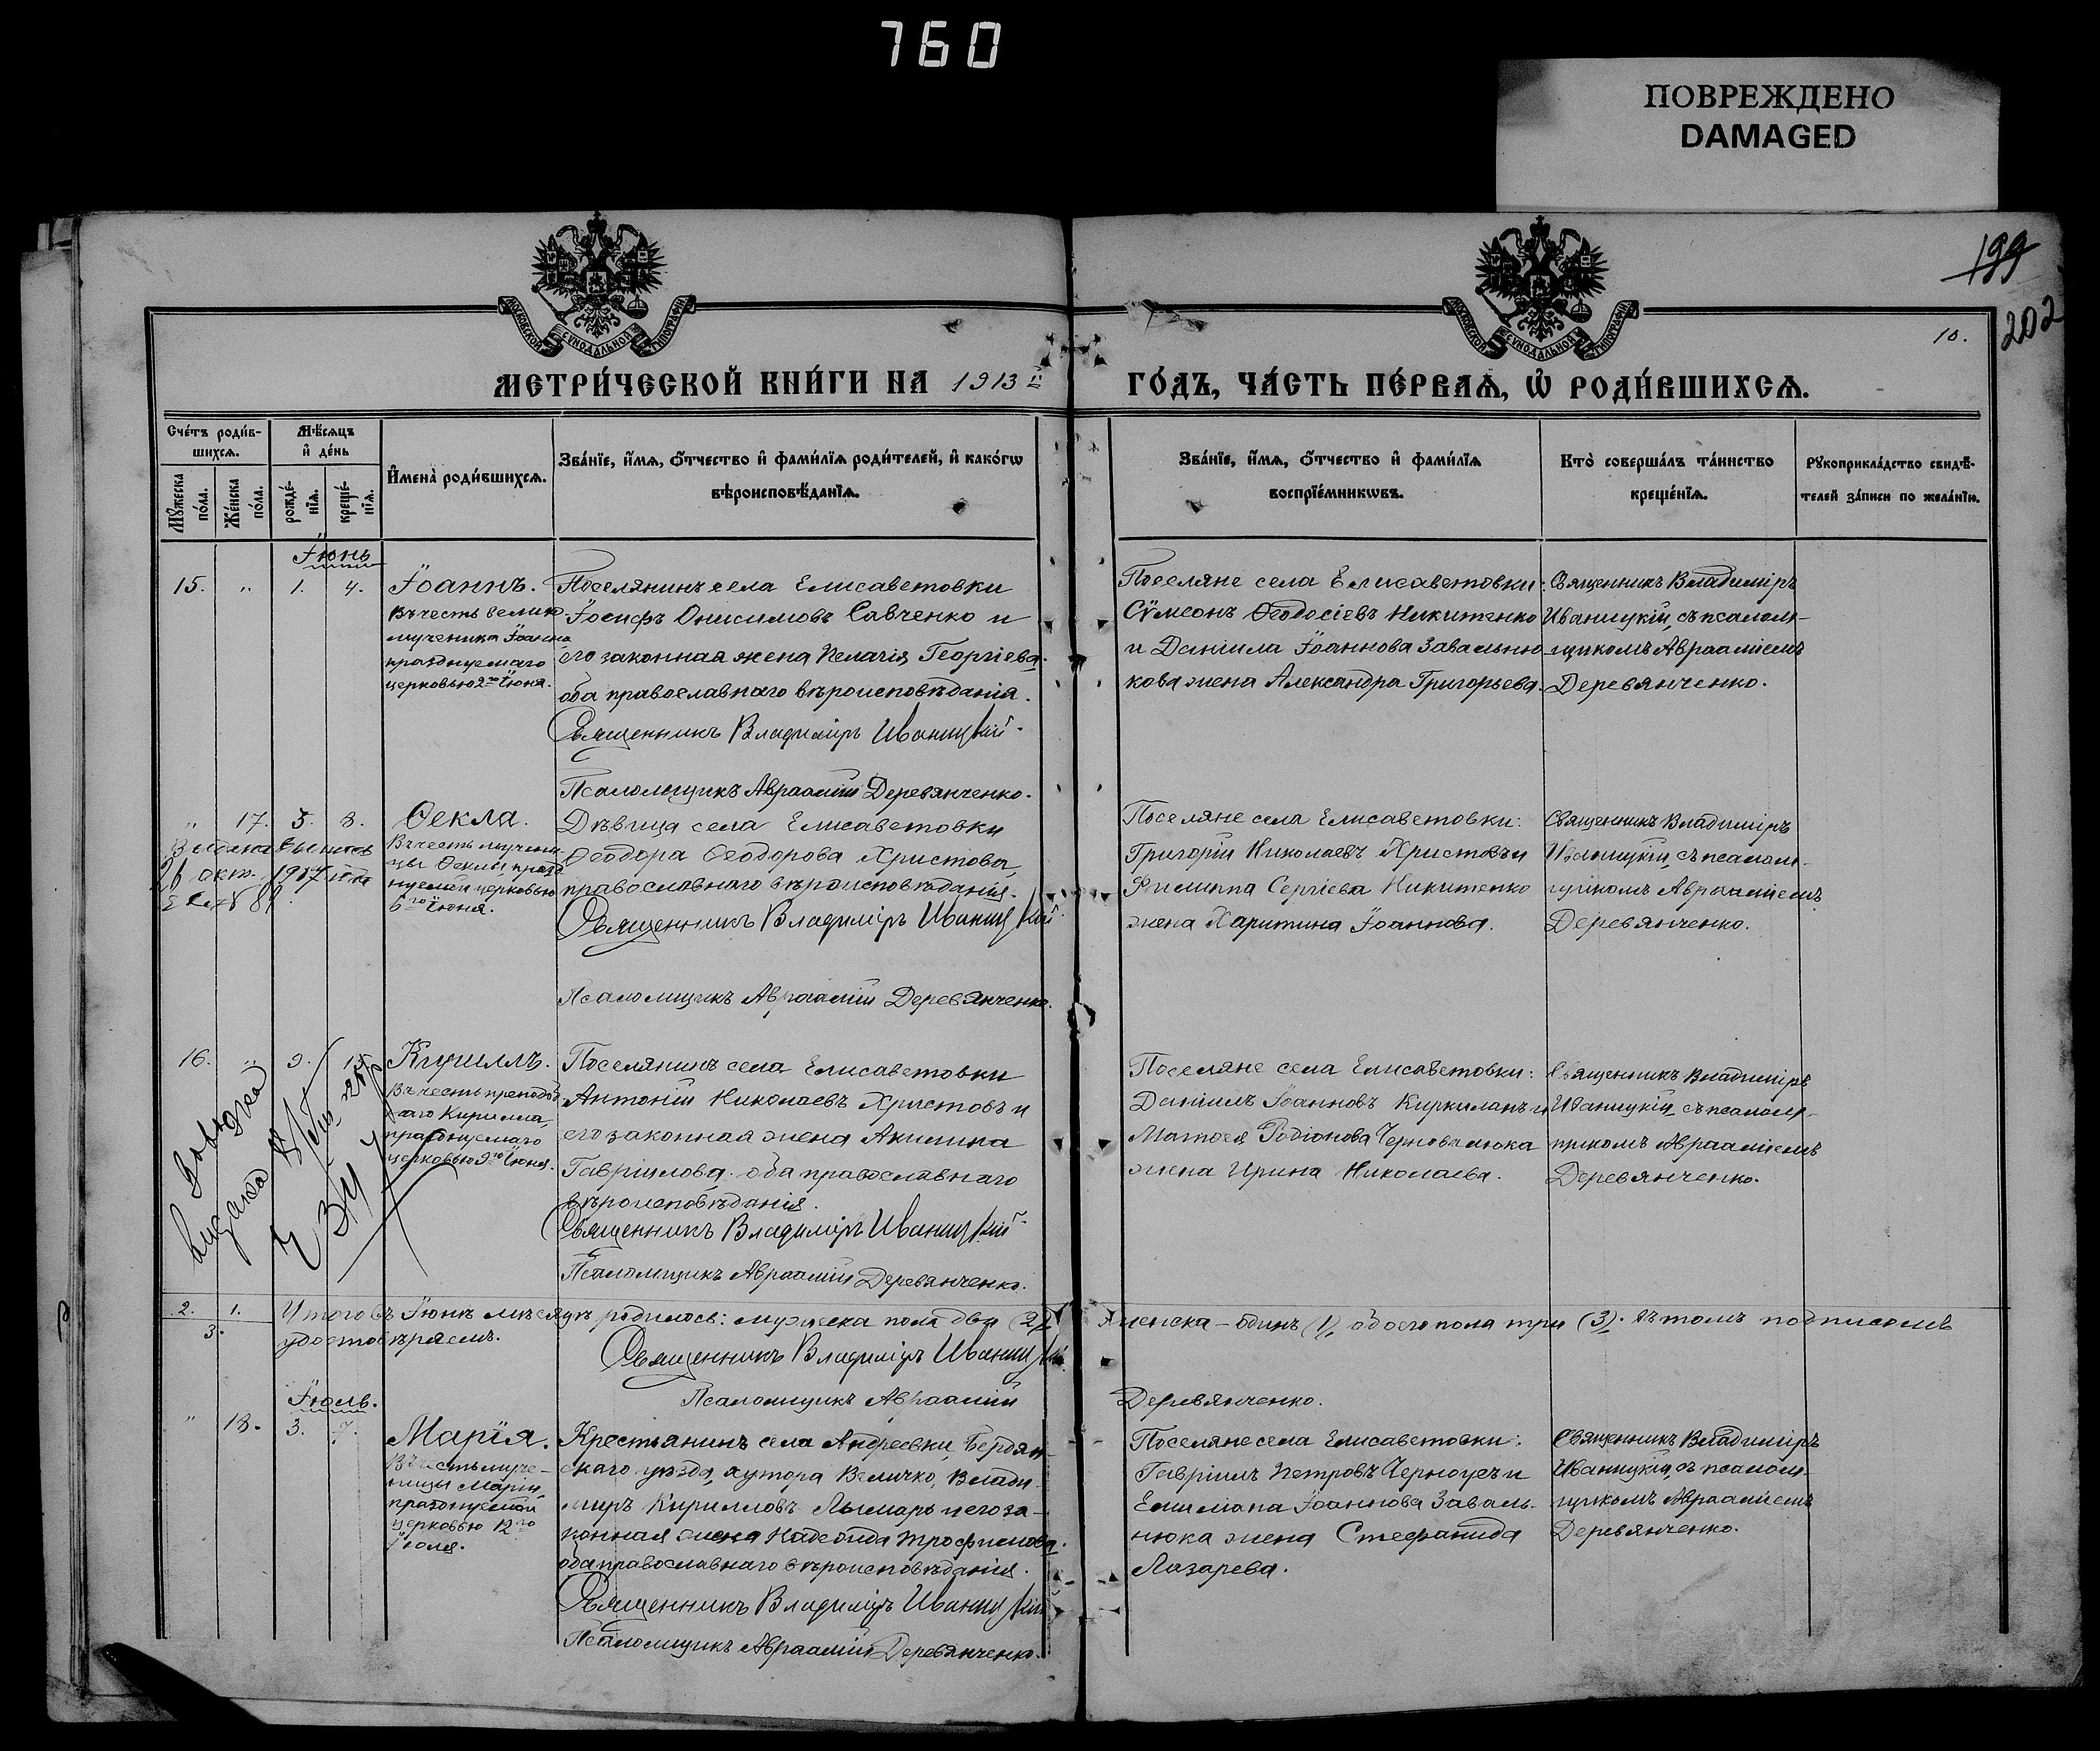 760
ПОВРЕЖДЕНО
DAMAGED
199
202
10.
МОСКОВСКОЙ СѴНОДАЛЬНОЙ ТИПОГРАФІИ
МОСКОВСКОЙ СѴНОДАЛЬНОЙ ТИПОГРАФІИ
МЕТРИ́ЧЕСКОЙ КНИ́ГИ НА 1913й
ГО́ДЪ, ЧА́СТЬ ПЕ́РВАѦ, Ѡ҆ РОДИ́ВШИХСѦ.
Сче́тъ роди́в-
шихсѧ.
Мѣ́сѧцъ
и҆ де́нь
Мꙋ́жеска по́ла.
Же́нска по́ла.
рожде́-нїѧ.
креще́-нїѧ.
И҆мена̀ роди́вшихсѧ.
Зва́нїе, и҆́мѧ, ѻ҆́тчество и҆ фами́лїѧ роди́телей, и҆ како́гѡ
вѣроисповѣ́данїѧ.
Зва́нїе, и҆́мѧ, ѻ҆́тчество и҆ фами́лїѧ
воспрїе́мникѡвъ.
Кто̀ соверша́лъ та́инство
креще́нїѧ.
Рꙋкоприкла́дство свидѣ́-
телей за́писи по жела́нїю.
Іюнь
15. „ 1. 4.
Іоаннъ.
Въ честь велико-
мученика Іоанна
празднуемаго
церковью 2го Іюня.
Поселянинъ села Елисаветовки
Іосифъ Онисимовъ Савченко и
его законная жена Пелагія Георгіева.
оба православнаго вѣроисповѣданія.
Священникъ Владиміръ Иваницкій
Псаломщикъ Авраамій Деревянченко.
Поселяне села Елисаветовки:
Сѵмеонъ Ѳеодосіевъ Никитенко
и Даніила Іоаннова Завальню-
кова жена Александра Григорьева.
Священникъ Владиміръ
Иваницкій, съ псалом-
щикомъ Авраміемъ
Деревянченко.
„ 17. 5. 8.
Выдана выпись
26 окт. 1917
№ 81.
Ѳекла.
Въ честь мучени-
цы Ѳеклы, празд-
нуемой церковью
6го Іюня.
Дѣвица села Елисаветовки
Ѳеодора Ѳеодорова Христова,
православнаго вѣроисповѣданія.
Священникъ Владиміръ Иваницкій
Псаломщикъ Авраамій Деревянченко.
Поселяне села Елисаветовки:
Григорій Николаевъ Христовъ и
Филиппа Сергіева Никитенко
жена Харитина Іоаннова.
Священникъ Владиміръ
Иваницкій, съ псалом-
щикомъ Авраміемъ
Деревянченко.
16. „ 9. 15.
Кириллъ.
Въ честь преподоб-
наго Кирилла,
празднуемаго
церковью 9го Іюня.
Поселянинъ села Елисаветовки
Антоній Николаевъ Христовъ и
его законная жена Акилина
Гавріилова. оба православнаго
вѣроисповѣданія.
Священникъ Владиміръ Иваницкій
Псаломщикъ Авраамій Деревянченко.
Поселяне села Елисаветовки:
Даніилъ Іоанновъ Киркиланъ и
Матѳея Родіонова Черновалюка
жена Ирина Николаева.
Священникъ Владиміръ
Иваницкій, съ псалом-
щикомъ Авраміемъ
Деревянченко.
2. 1.
3.
Итого въ Іюнѣ мѣсяцѣ родилось: мужеска пола два (2), женска - одинъ (1), обоего пола три (3). Въ томъ подписомъ
удостовѣряемъ.
Священникъ Владиміръ Иваницкій
Псаломщикъ Авраамій Деревянченко.
Іюль.
„ 18. 3. 7.
Марія.
Въ честь муче-
ницы Маріи,
празднуемой
церковью 12го
Іюля.
Крестьянинъ села Андреевки, Бердян-
скаго уѣзда, хутора Величко, Влади-
миръ Кирилловъ Лымарь и его за-
конная жена Надежда Трофимова.
оба православнаго вѣроисповѣданія.
Священникъ Владиміръ Иваницкій
Псаломщикъ Авраамій Деревянченко.
Поселяне села Елисаветовки:
Гавріилъ Петровъ Черноусъ и
Емиліана Іоаннова Заваль-
нюка жена Стефанида
Лазарева.
Священникъ Владиміръ
Иваницкій, съ псалом-
щикомъ Авраміемъ
Деревянченко.